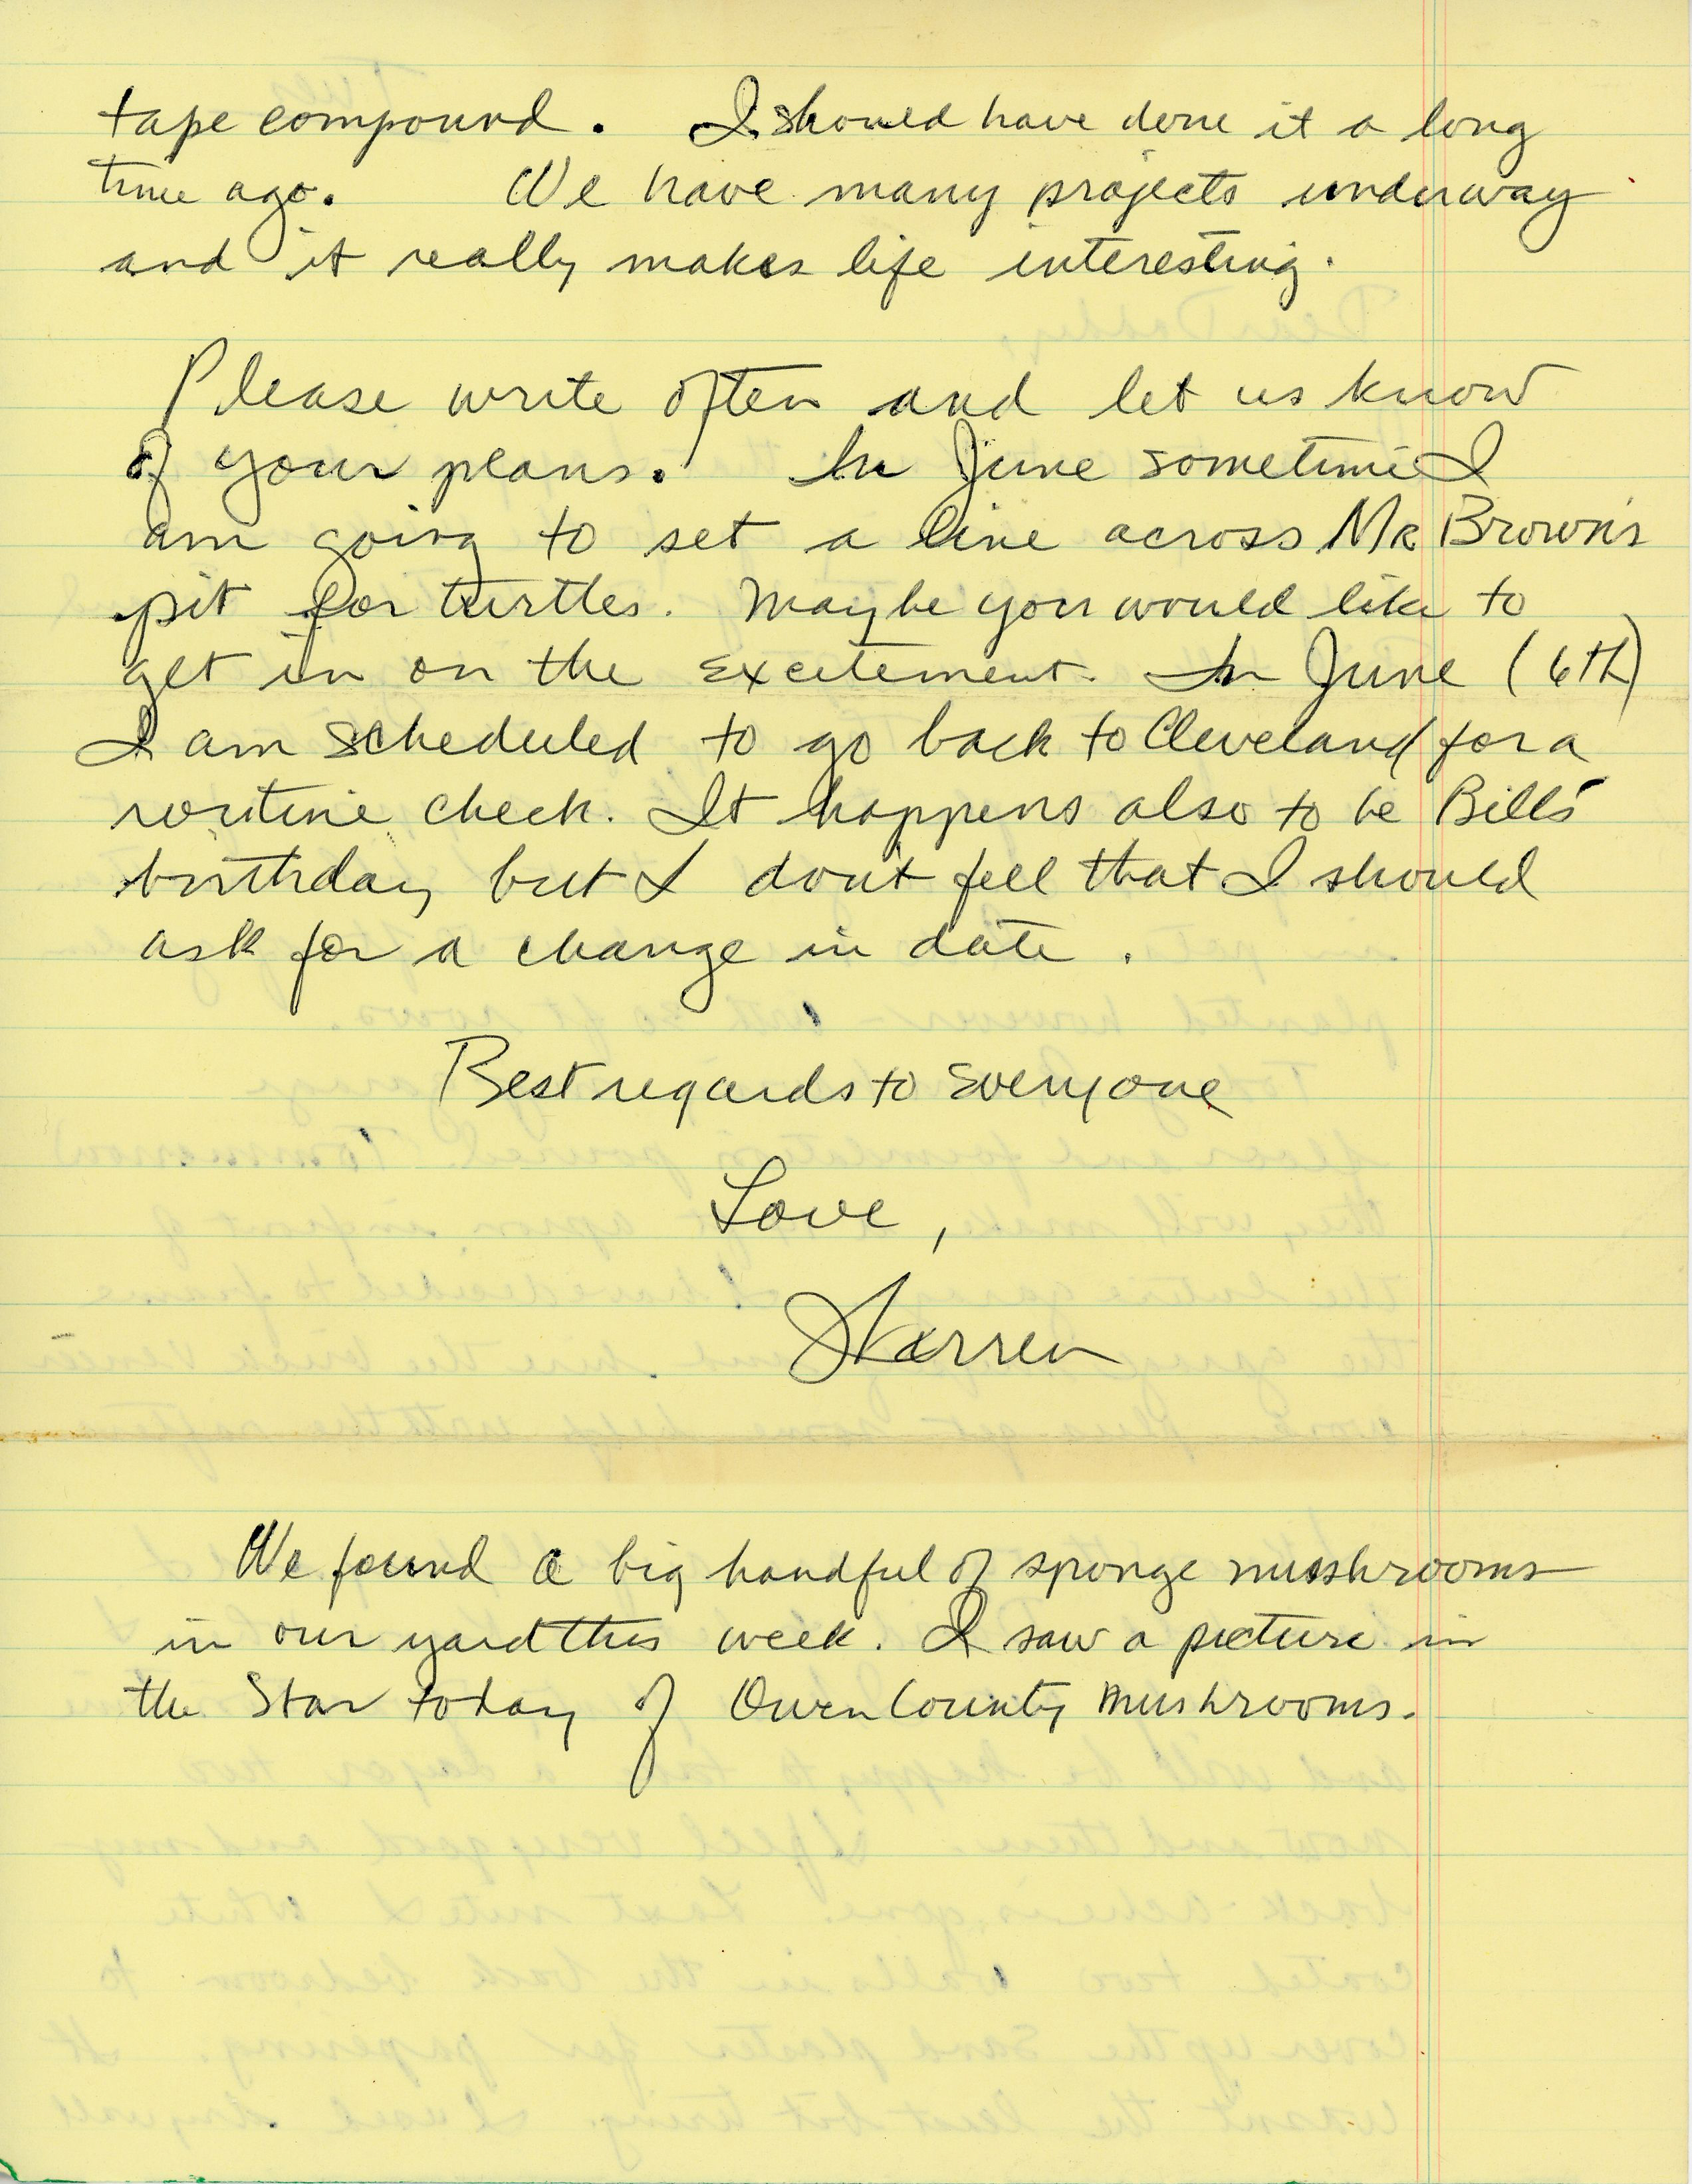 tape compound. I should have done it a long
time ago. We have many projects underway
and it really makes life interesting.
Please write often and let us know
of your plans. In June sometime I
am going to set a line across Mr Brown's
pit for turtles. Maybe you would like to
get in on the excitement. In June (6th)
I am scheduled to go back to Cleveland for a
routine check. It happens also to be Bill's
birthday but I don't fell that I should
ask for a change in date.
Best regards to everyone
Love,
Warren
We found a big handful of sponge musshrooms
in our yard this week. I saw a picture in
the Star today of Owen County mushrooms.